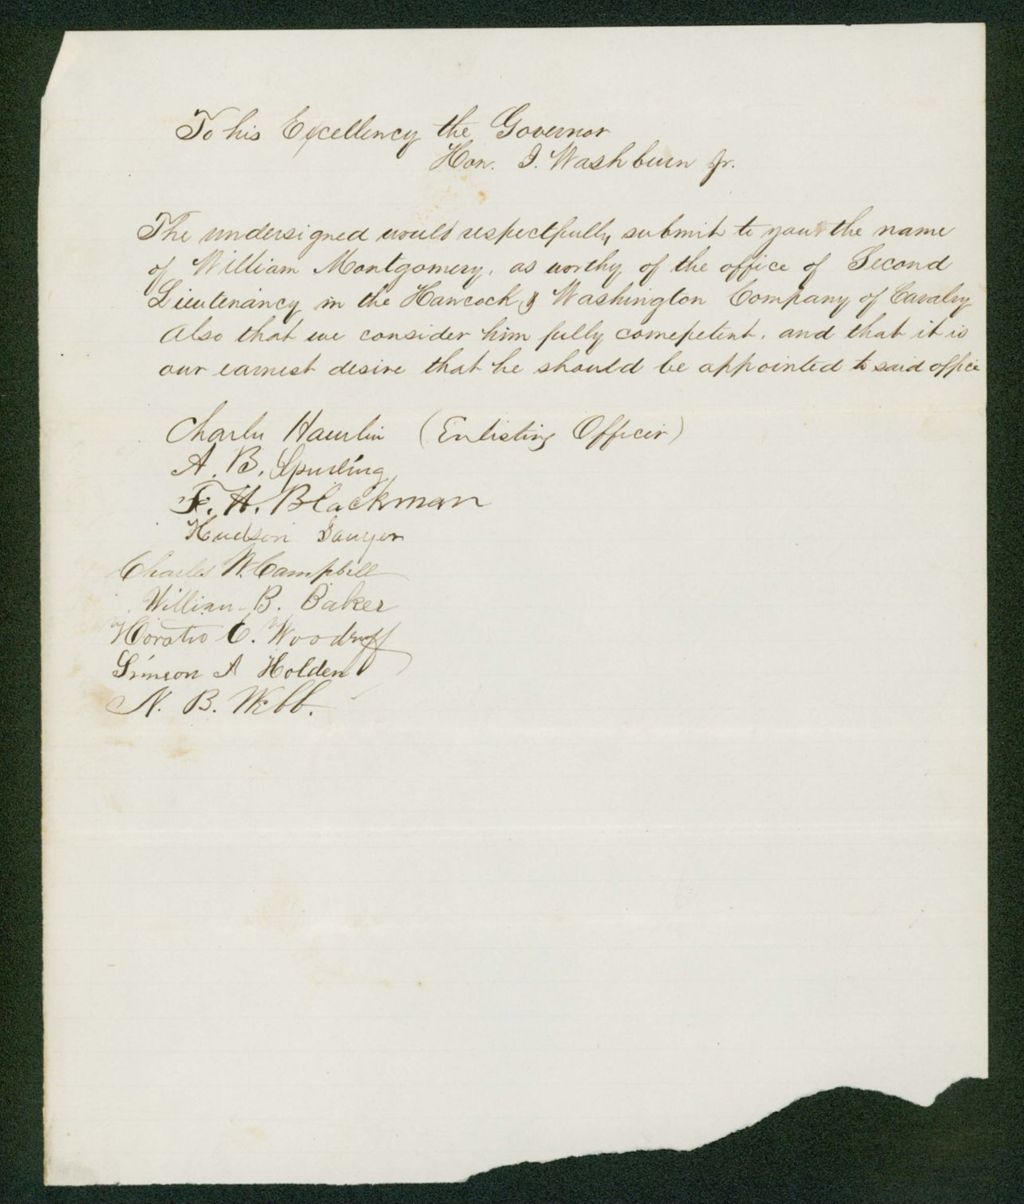 To his Excellency the Governor
Hon. I. Washburn Jr.
The undersigned would respectfully submit to your the name
of William Montgomery, as worthy of the office of Second
Lieutenancy in the Hancock & Washington Company of Cavalry
Also that we consider him fully comepetent, and that it is
our earnest desire that he should be appointed to said office
Charles Hamlin (Enlisting Officer)
A. B. Spurling
F. H. Blackman
Hudson Sawyer
Charles W. Campbell
William B. Baker
Horatio C. Woodruff
Simeon A Holden
N. B. Webb.